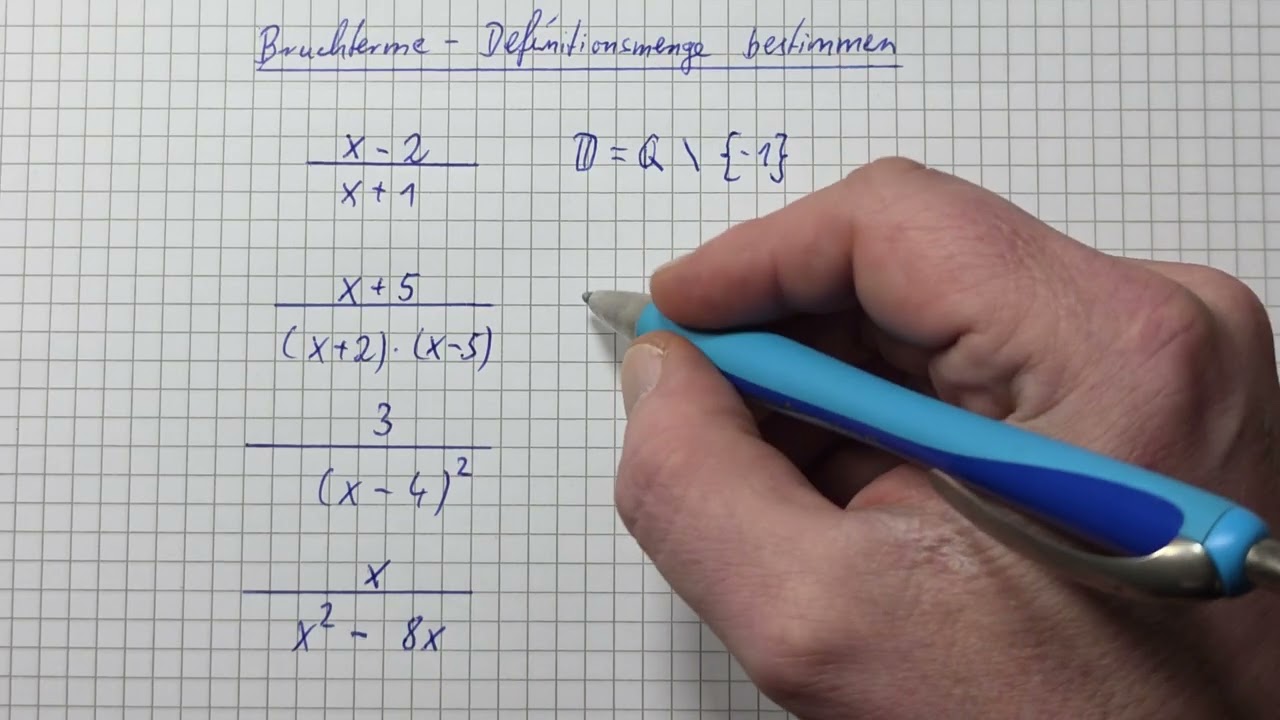 Bruchterme - Definitionsmenge bestimmen
x - 2
x + 1
𝔻 = ℚ \ {-1}
x + 5
(x+2) · (x-5)
3
(x - 4)²
x
x² - 8x